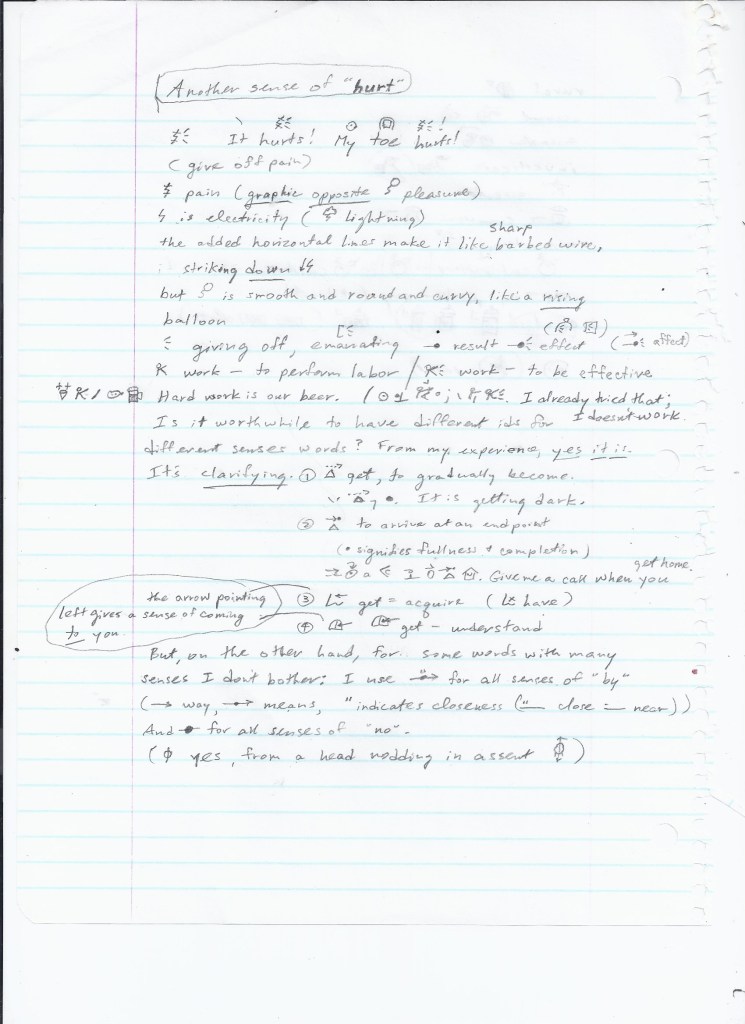 Another sense of "hurt"
It hurts! My toe hurts!
(give off pain)
pain (graphic opposite pleasure)
is electricity ( lightning)
sharp
the added horizontal lines make it like barbed wire,
striking down
but is smooth and round and curvy, like a rising
balloon
giving off, emanating → result effect ( affect)
work – to perform labor / work – to be effective
Hard work is our beer. I already tried that;
I doesn't work.
Is it worthwhile to have different ids for
different senses words? From my experience, yes it is.
It's clarifying. ① get, to gradually become.
It is getting dark.
② to arrive at an endpoint
(• signifies fullness + completion)
get home.
Give me a call when you
the arrow pointing ③ get = acquire ( have)
left gives a sense of coming
to you. ④ get – understand
But, on the other hand, for some words with many
senses I don't bother: I use for all senses of "by"
(→ way, means, " indicates closeness ( close = near))
And for all senses of "no".
(ϕ yes, from a head nodding in assent )